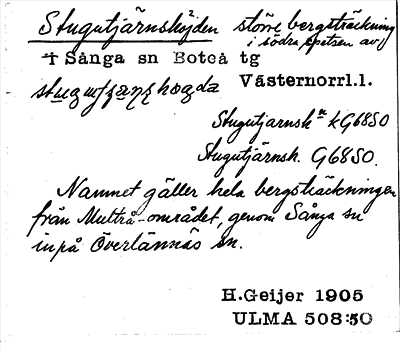 Stugutjärnshöjden större bergsträckning
i södra spetsen av
† Sånga sn Boteå tg
Västernorrl.l.
Stugutjarnsh kG68SO
Stugutjärnsh. G68SO.
Namnet gäller hela bergsträckningen
från Multrå-området, genom Sånga sn
inpå Överlännäs sn.
H.Geijer 1905
ULMA 508:50